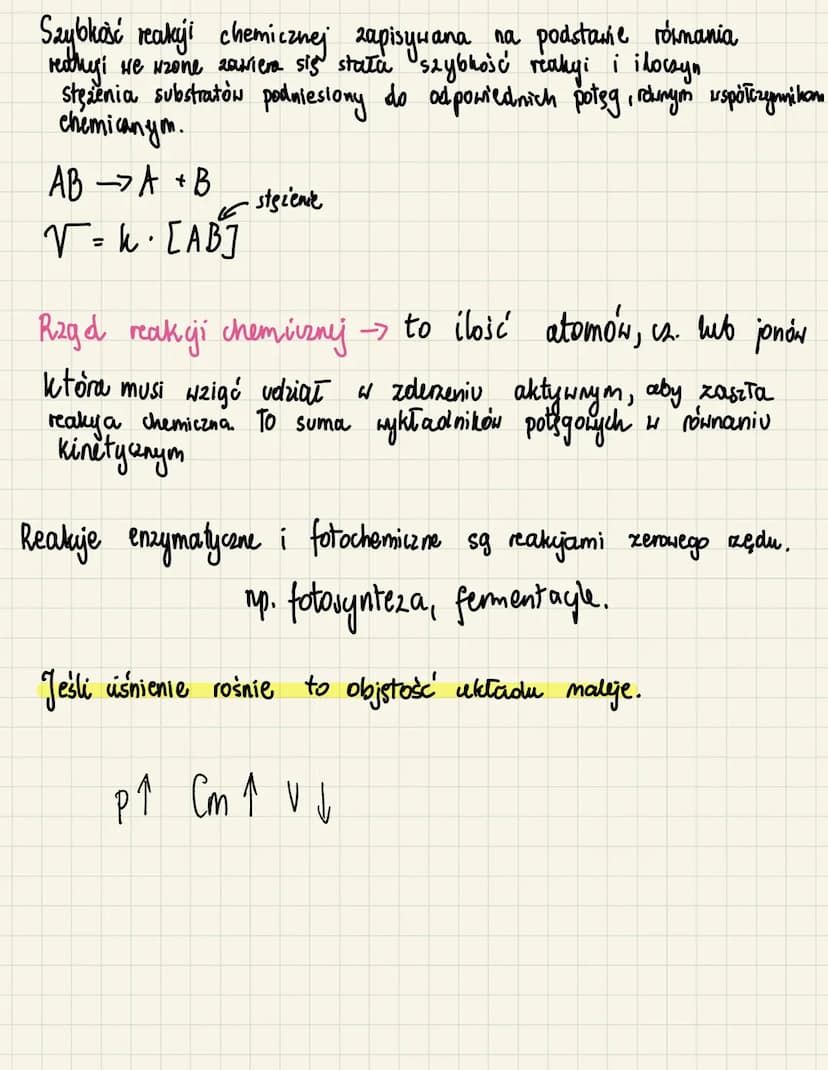 Szybkość reakcji chemicznej zapisywana na podstawie równania
reakcji we wzorze zawiera się stała szybkość reakcji i iloczyn
stężenia substratów podniesiony do odpowiednich potęg, równym współczynnikom
chemicznym.
AB → A + B
stężenie
V = k · [AB]
Rząd reakcji chemicznej → to ilość atomów, cz. lub jonów
która musi wziąć udział w zderzeniu aktywnym, aby zaszła
reakcja chemiczna. To suma wykładników potęgowych w równaniu
kinetycznym
Reakcje enzymatyczne i fotochemiczne są reakcjami zerowego rzędu.
np. fotosynteza, fermentacje.
Jeśli ciśnienie rośnie to objętość układu maleje.
p↑ Cm↑ V↓